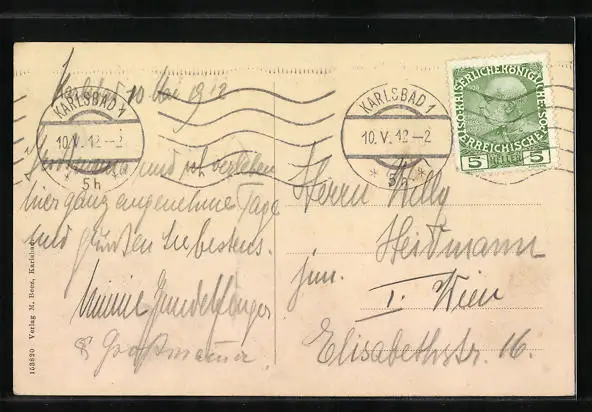 10 Mai 1912
KARLSBAD 1
10.V.12-2
5h
Grossmama und ich verleben
hier ganz angenehme Tage
und grüßen Sie bestens.
Minnie Gundelfinger
& Großmama.
KARLSBAD 1
10.V.12-2
* 5h *
KAISERLICHE KÖNIGLICHE
ÖSTERREICHISCHE
5 HELLER 5
Herrn Willy
Heidmann
jun.
I. Wien
Elisabethstr. 16.
153820 Verlag M. Beer, Karlsbad